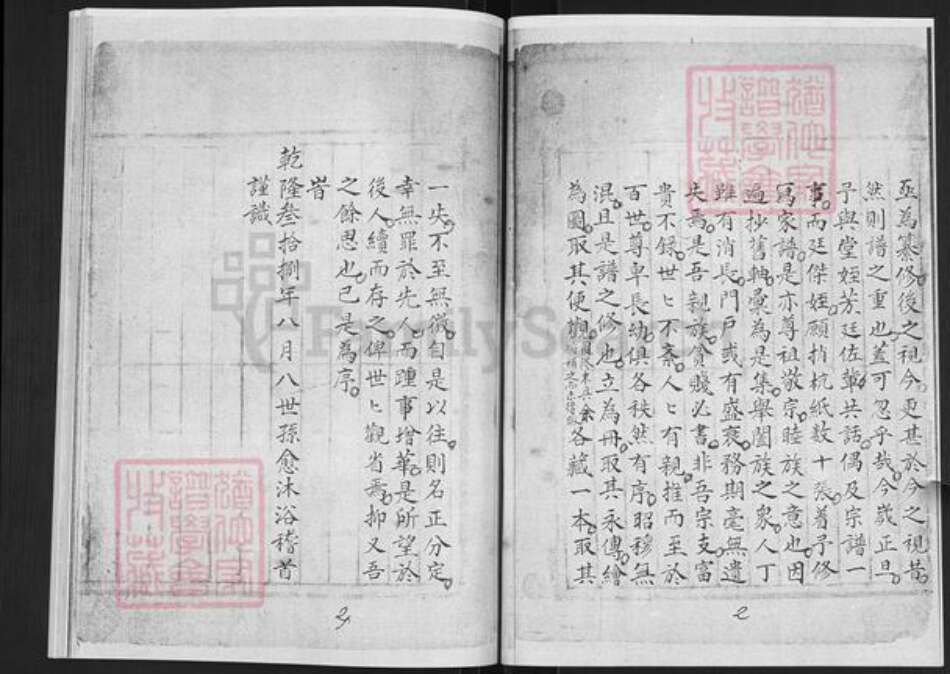 亟為纂修後之視今更甚於今之視昔
然則譜之重也蓋可忽乎哉今歲正旦
予與堂姪芳廷佐輩共話偶及宗譜一
事而廷傑姪願捐杭紙数十張着予修
寫家譜是亦尊祖敬宗睦族之意也因
遍抄舊轴彙為是集舉闔族之衆人丁
雖有消長門戶或有盛衰務期毫無遺
失焉是吾親族貧賤必書非吾宗支富
貴不録世匕不紊人匕有親推而至於
百世尊卑長幼俱各秩然有序昭穆無
混且是譜之修也立為冊取其永傳繪
為圖取其便觀 余各藏一本取其
一失不至無徵自是以往則名正分定
幸無罪於先人而踵事增華是所望於
後人續而存之俾世匕觀省焉抑又吾
之餘思也已是為序
旹
乾隆叁拾捌年八月八世孫愈沐浴稽首
謹識
2
2
FamilySearch